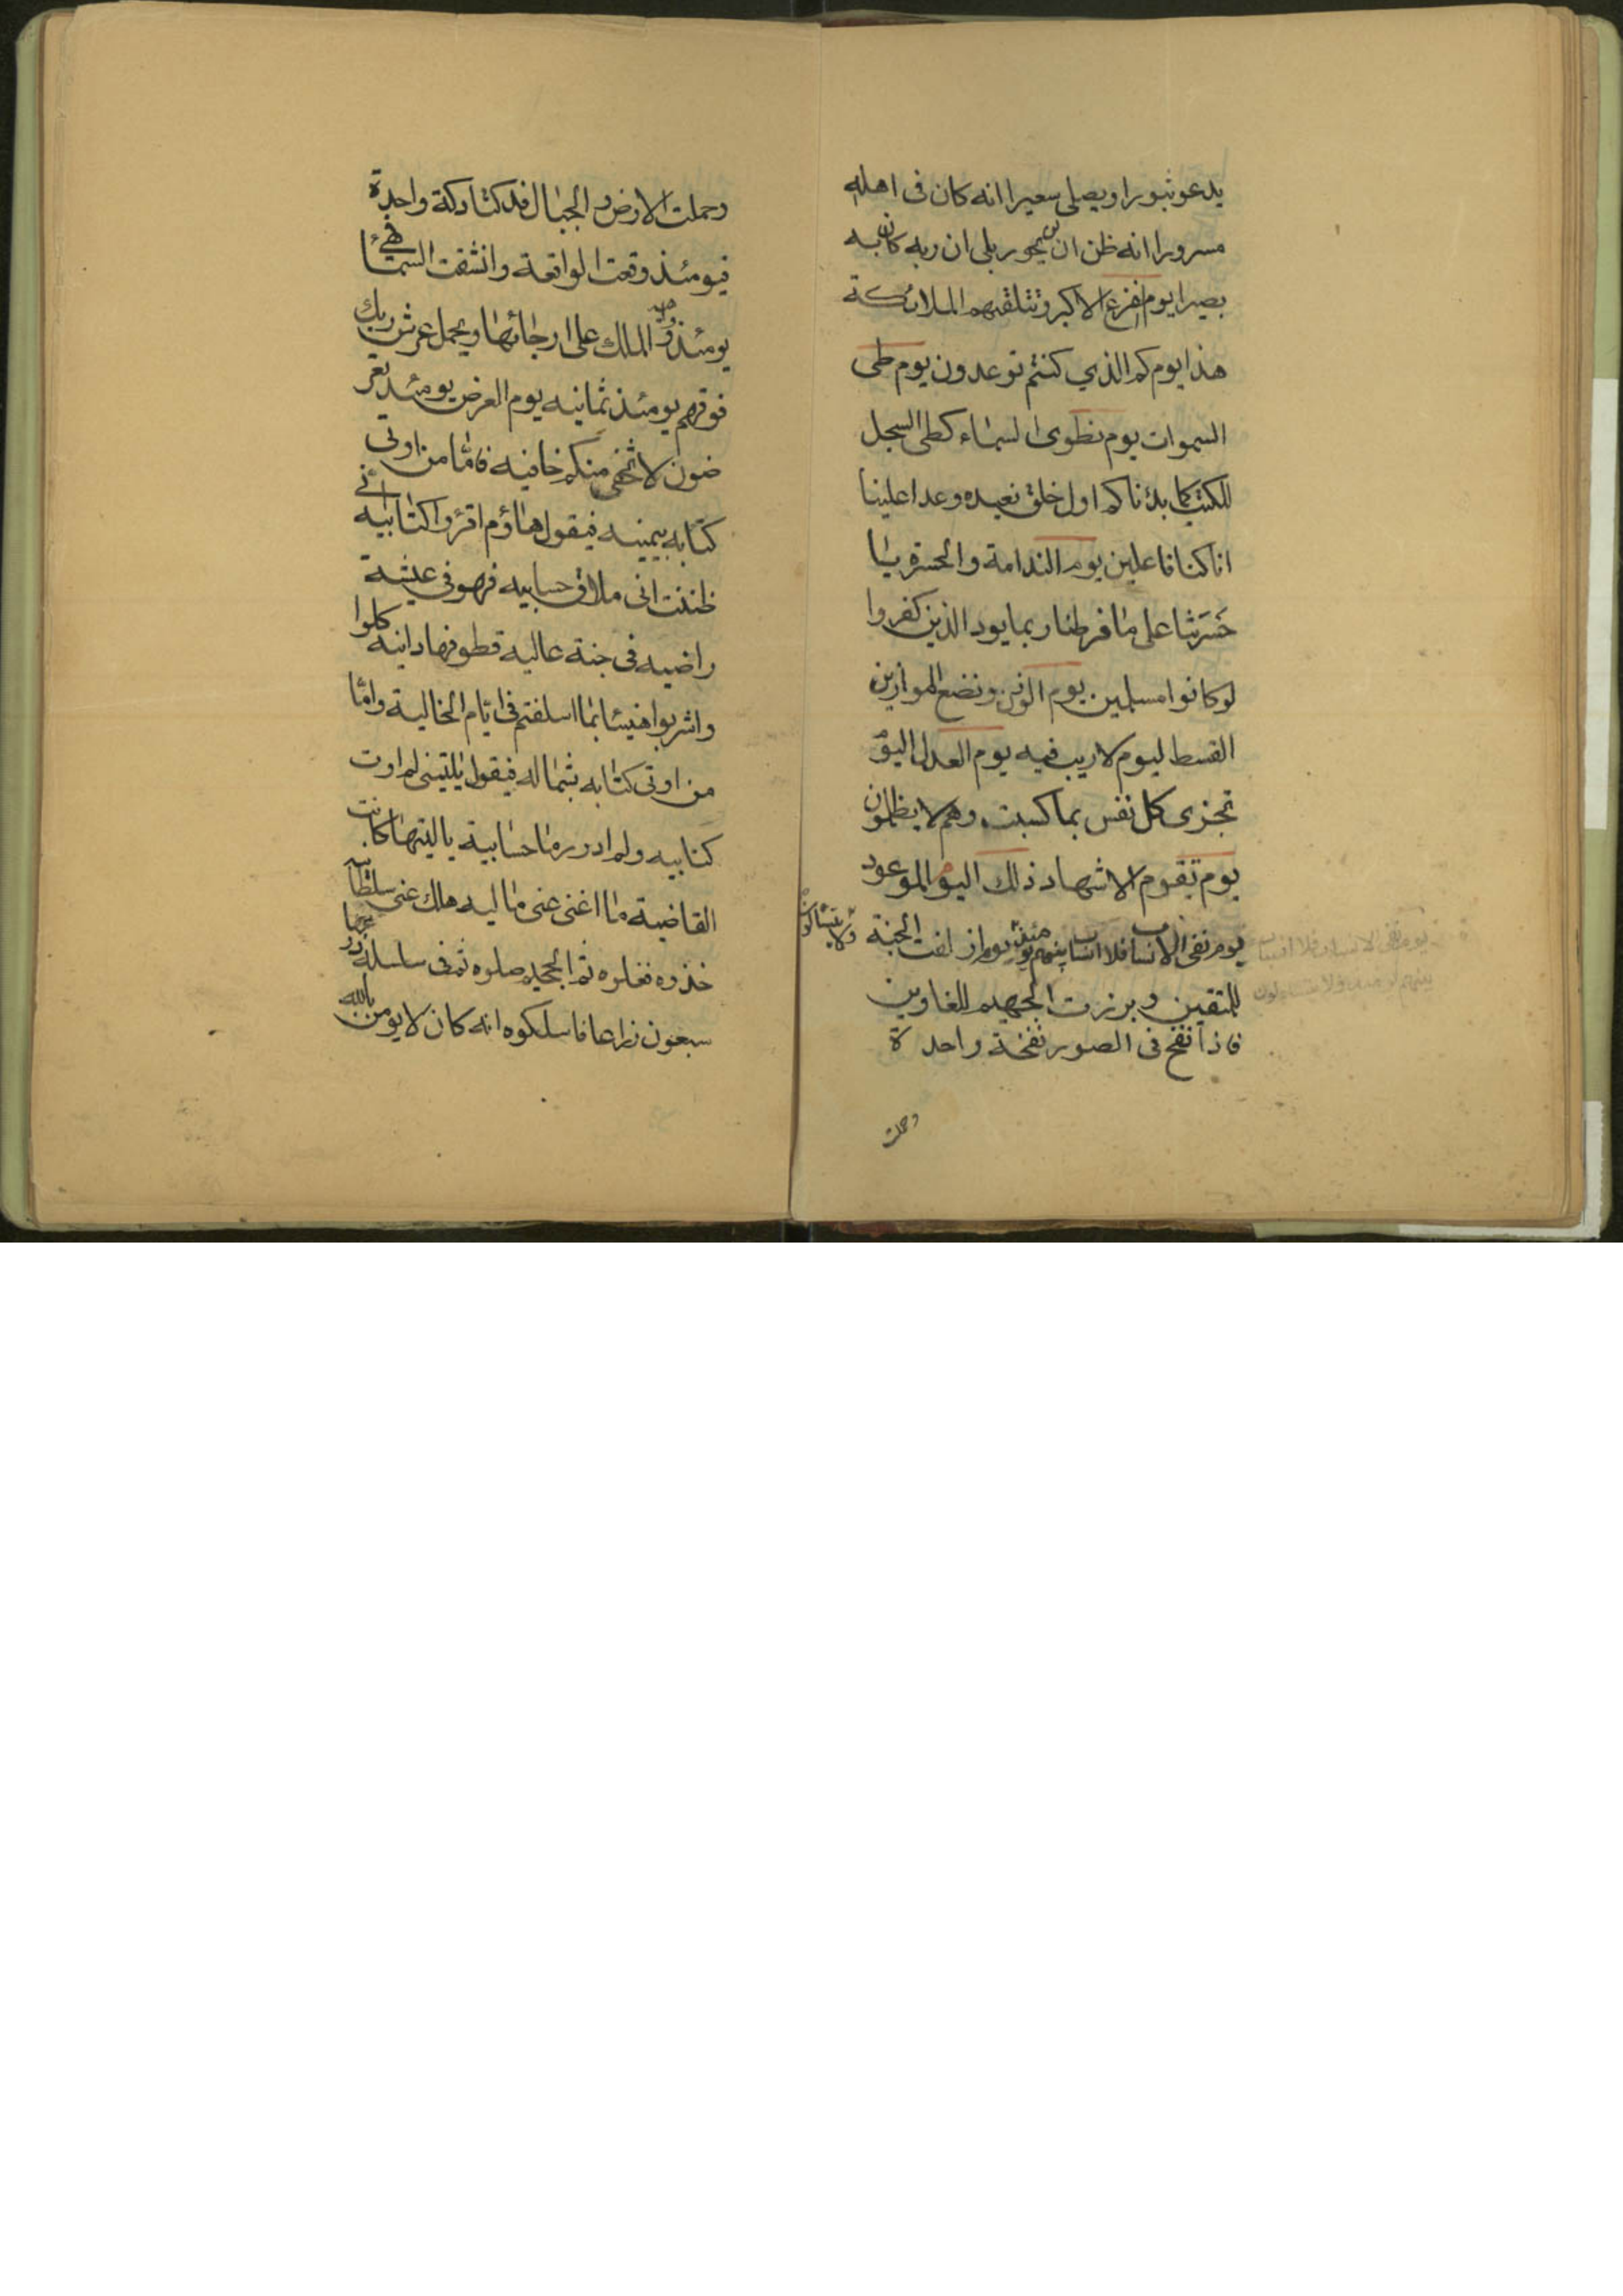 يدعو ثبورا ويصلى سعيرا انه كان فى اهله
مسرورا انه ظن ان لن يحور بلى ان ربه كان به
بصيرا يوم الفزع الاكبر وتتلقيهم الملائكة
هذا يوم كم الذي كنتم توعدون يوم طى
السموات يوم نطوى السماء كطى السجل
للكتب كما بدئنا كم اول خلق نعيده وعدا علينا
انا كنا فاعلين يوم الندامة والحسرة يا
حَسَرَتنا على ما فرطنا ربما يود الذين كفروا
لو كانوا مسلمين يوم الوزن ونضع الموازين
القسط ليوم لا ريب فيه يوم العدل اليوم
تجزى كل نفس بما كسبت وهم لا يظلمون
يوم تقوم الاشهاد ذلك اليوم الموعود
يوم نفى الانساب فلا انساب بينهم يومئذ ولا يتسائلون يوم ازلفت الجنة
للمتقين وبرزت الجحيم للغاوين
فاذا نفخ فى الصور نفخة واحدة
وحملت
يوم نفى الانساب فلا انساب
بينهم يومئذ ولا يتسائلون
وحملت الارض والجبال فدكتا دكة واحدة
فيومئذ وقعت الواقعة وانشقت السماء فهى
يومئذ واهية والملك على ارجائها ويحمل عرش ربك
فوقهم يومئذ ثمانيه يوم العرض يومئذ تعر
ضون لا تخفى منكم خافيه فامّا من اوتى
كتابه بيمينه فيقول هاؤم اقرؤا كتابيه انى
ظننت انى ملاق حسابيه فهو فى عيشة
راضيه فى جنة عاليه قطوفها دانيه كلوا
واشربوا هنيئا بما اسلفتم فى ايّام الخالية وامّا
من اوتى كتابه بشماله فيقول يليتنى لم اوت
كتابيه ولم ادر ما حسابية ياليتها كانت
القاضية ما اغنى عنى ماليه هلك عنى سلطانيه
خذوه فغلوه ثم الجحيم صلوه ثم فى سلسلة ذرعها
سبعون ذراعا فاسلكوه انه كان لا يومن بالله